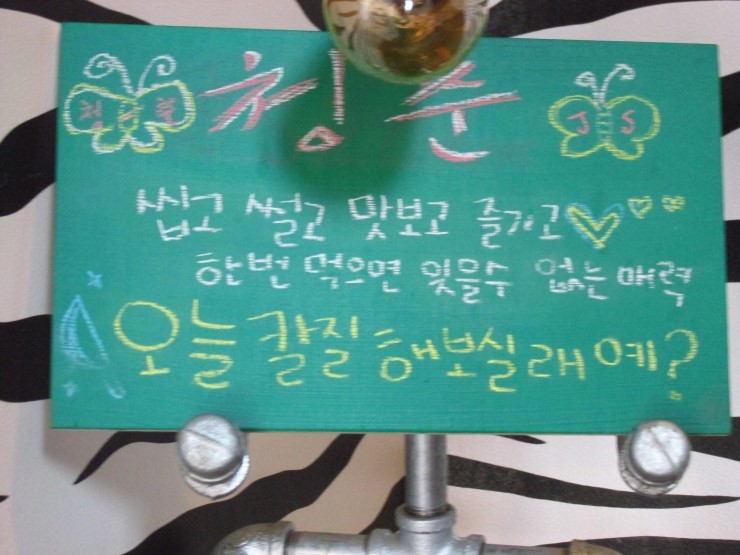 청춘
J S
씹고 썰고 맛보고 즐기고
한번 먹으면 잊을수 없는 매력
오늘 칼질 해보실래예?